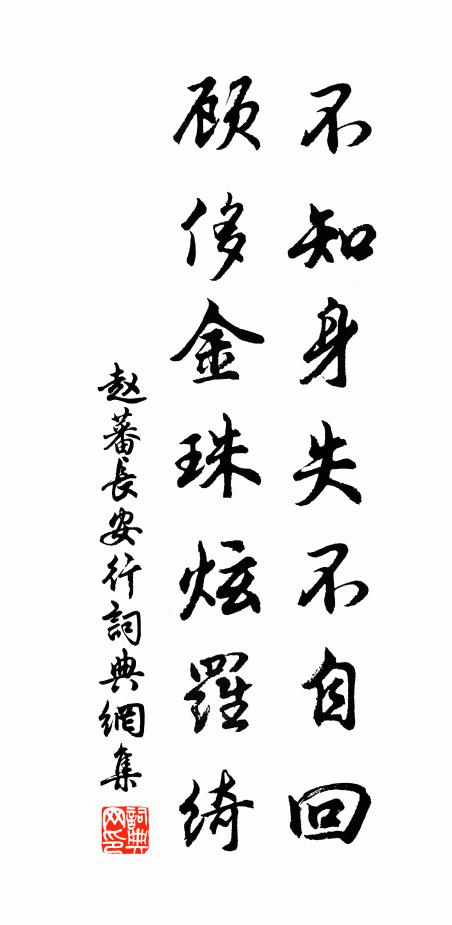 不知身失不自回
顾侈金珠炫羅綺
赵蕃長安行詞典網集
詞典网印